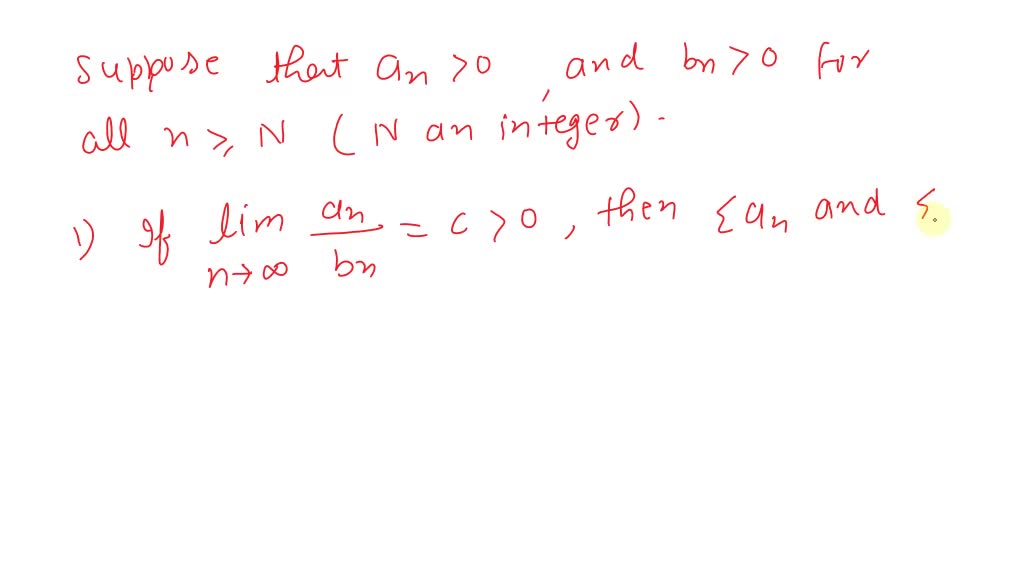 Suppose that an >0, and bn >0 for
all n ≥ N ( N an integer).
1) If lim n→∞ an/bn = c > 0, then Σan and Σ